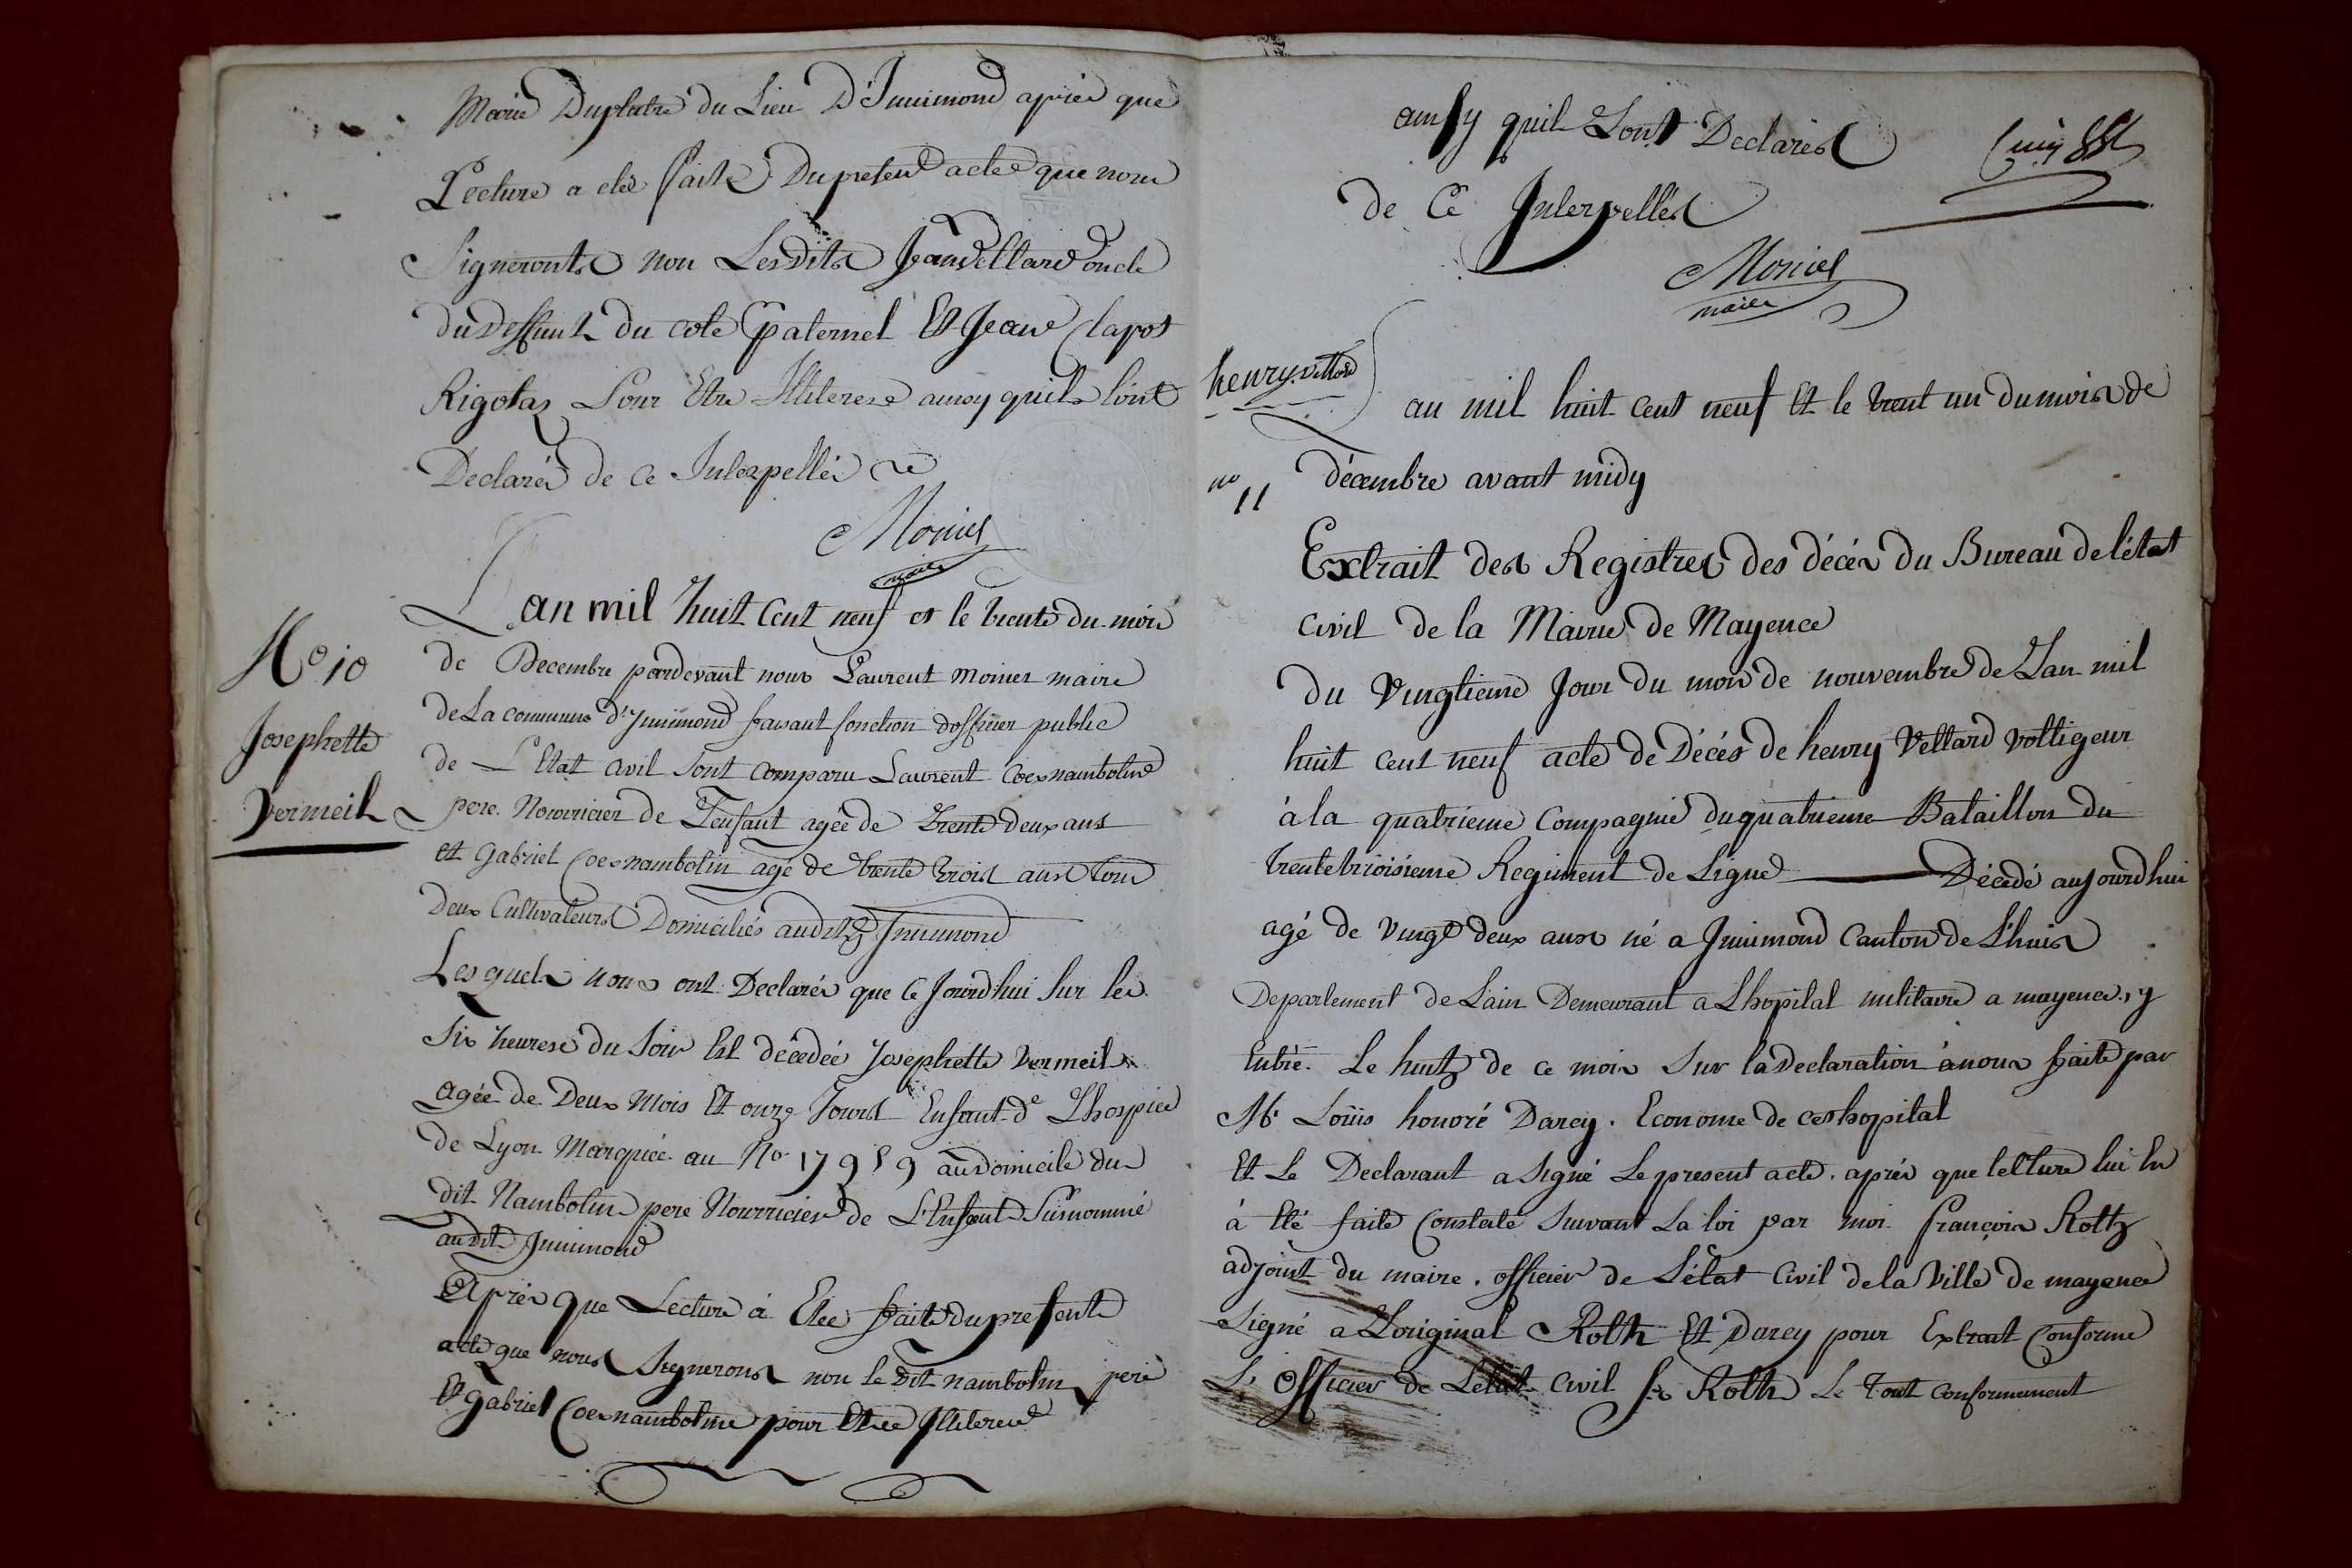 Marie Duplatre du Lieu D'Innimond après que
Lecture a eté faite Du present acte que nous
Signeronts non Lesdits Jean Vellard oncle
du deffunt du coté paternel Et Jean Clapot
Rigolas Pour Etre Illiterese ainsy quils Lont
Declarés de ce Interpellés
Monier
maire
L'an mil huit Cent neuf et le trente du mois
No 10
de Decembre pardevant nous Laurent monier maire
de La commune d'Innimond faisant fonction d'officier public
Josephette
de L'Etat civil sont comparu Laurent Coex nambotin
Vermeil
pere Nourricier de L'enfant agée de Trente deux ans
et Gabriel Coex nambotin agé de trente trois ans tous
Deux Cultivateurs Domiciliés audit Innimond
Lesquels nous ont Declarés que ce Jourdhui sur les
Six heurese du Soir Est décedée Josephette Vermeil
agée de Deux Mois Et onze Jours Enfant de Lhospice
de Lyon Marquée au No 17959 au domicile du
dit Nambotin pere Nourricier de L'Enfant Susnommé
audit Innimond
Après que Lecture à Etée faite du presente
acte que nous Signerons non le dit nambotin pere
Et gabriel Coex nambotine pour Etre Illiterese
ainsy quil Lont Declarés
de Ce Interpellés
Monier
maire
henry vellard
an mil huit cent neuf Et le trent un du mois de
no 11
décembre avant midy
Extrait des Registres des décés du Bureau de létat
civil de la Mairie de Mayence
du Vingtieme Jour du mois de nouvembre de Lan mil
huit cent neuf acte de Décés de henry Vellard Voltigeur
à la quatrieme Compagnie du quatrieme Bataillon du
trentetrioisieme Regiment de Ligne Décedé aujourdhui
agé de vingt deux ans né a Innimond Canton de Lhuis
Departement de Lain Demeurant a Lhopital militaire a mayence, y
Entré Le huit de ce mois Sur la Declaration à nous faite par
Mr Loüis honoré Darcy. Econome de cet hopital
Et Le Declarant a signé Le present acte. après que lecture lui en
à Eté faite Constaté Suivant La loi par moi françois Roth
adjoint du maire. officier de L'état Civil de la Ville de mayence
Signé a Loriginal Roth Et Darcy pour Extrait Conforme
L'officier de Letat Civil fs Roth Le Tout conformement